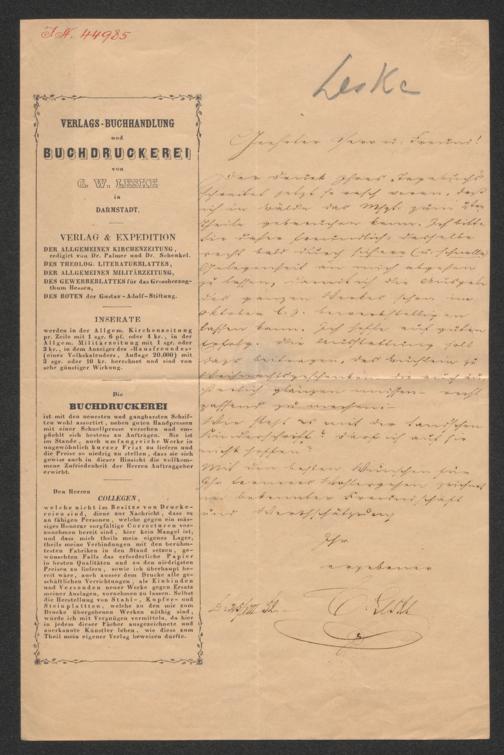 J.N. 44985
Leske
VERLAGS-BUCHHANDLUNG
und
BUCHDRUCKEREI
von
C. W. LESKE
in
DARMSTADT.
VERLAG & EXPEDITION
DER ALLGEMEINEN KIRCHENZEITUNG,
redigirt von Dr. Palmer und Dr. Schenkel.
DES THEOLOG. LITERATURBLATTES,
DER ALLGEMEINEN MILITÄRZEITUNG,
DES GEWERBEBLATTES für das Grossherzog-
thum Hessen,
DES BOTEN der Gustav-Adolf-Stiftung.
INSERATE
werden in der Allgem. Kirchenzeitung
pr. Zeile mit 1 sgr. 6 pf. oder 4 kr., in der
Allgem. Militärzeitung mit 1 sgr. oder
3 kr., in dem Anzeiger des »Hausfreundes«
(eines Volkskalenders, Auflage 20,000) mit
3 sgr. oder 10 kr. berechnet und sind von
sehr günstiger Wirkung.
Die
BUCHDRUCKEREI
ist mit den neuesten und gangbarsten Schrif-
ten wohl assortirt, neben guten Handpressen
mit einer Schnellpresse versehen und em-
pfiehlt sich bestens zu Aufträgen. Sie ist
im Stande, auch umfangreiche Werke in
ungewöhnlich kurzer Frist zu liefern und
die Preise so niedrig zu stellen, dass sie sich
gewiss auch in dieser Hinsicht die vollkom-
mene Zufriedenheit der Herren Auftraggeber
erwirbt.
Den Herren
COLLEGEN,
welche nicht im Besitze von Drucke-
reien sind, diene zur Nachricht, dass es
an fähigen Personen, welche gegen ein mäs-
siges Honorar sorgfältige Correcturen vor-
zunehmen bereit sind, hier kein Mangel ist,
und dass mich theils mein eigenes Lager,
theils meine Verbindungen mit den berühm-
testen Fabriken in den Stand setzen, ge-
wünschten Falls das erforderliche Papier
in besten Qualitäten und zu den niedrigsten
Preisen zu liefern, sowie ich überhaupt be-
reit wäre, auch ausser dem Drucke alle ge-
schäftlichen Verrichtungen, als Einbinden
und Versenden neuer Werke gegen Ersatz
meiner Auslagen, vornehmen zu lassen. Selbst
die Herstellung von Stahl-, Kupfer- und
Steinplatten, welche zu den mir zum
Drucke übergebenen Werken nöthig sind,
würde ich mit Vergnügen vermitteln, da hier
in jedem dieser Fächer ausgezeichnete und
anerkannte Künstler leben, wie diess zum
Theil mein eigener Verlag beweisen dürfte.
Geehrter Herr u. Freund!
Der Druck Ihres Tagebuchs
schreitet jetzt so rasch voran, daß
ich in Bälde das Mspt. zum
Theile gebrauchen kann. Ich bitte
Sie daher freundlichst, dasselbe
recht bald durch
Gelegenheit an mich abgehen
zu lassen, damit ich die Ausgabe
des ganzen Werkes schon im
Oktober bewerkstelligen
lassen kann. Ich hoffe auf guten
Erfolg. Die Ausstattung soll
dazu beitragen, das Büchlein zu
Weihnachtsgeschenken
recht
passend zu machen.
Wie steht es mit der
Handschrift? Darf ich auf sie
nicht hoffen.
Mit den besten Wünschen für
Ihr Wohlergehen zeichnet
in bekannter Freundschaft
und Werthschätzung
Ihr
ergebener
C. Leske